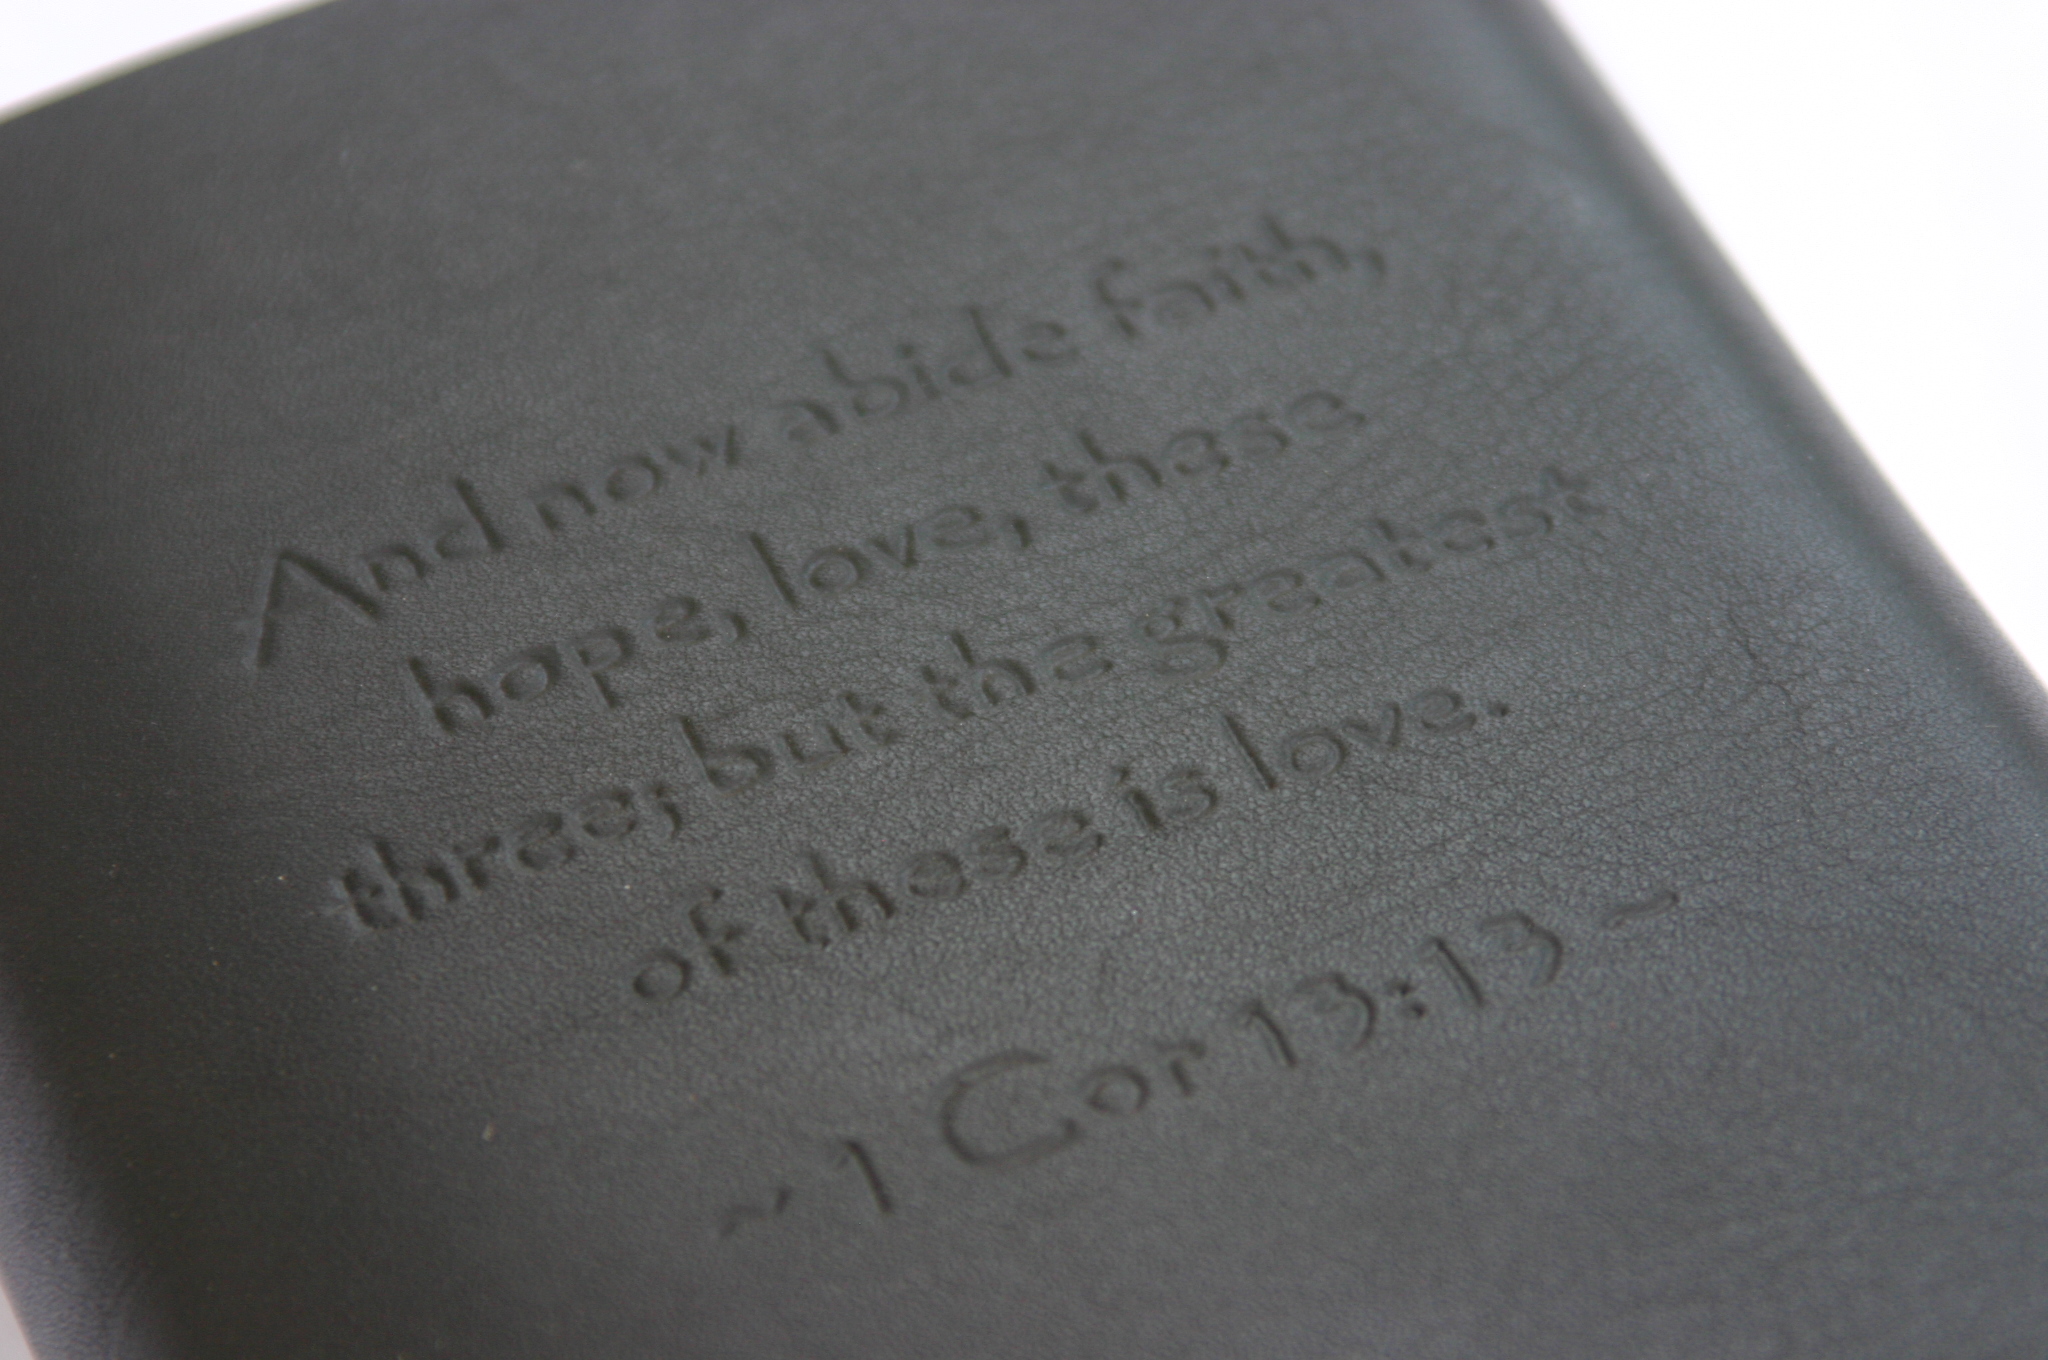 And now abide faith,
hope, love, these
three; but the greatest
of these is love.
~ 1 Cor 13:13 ~